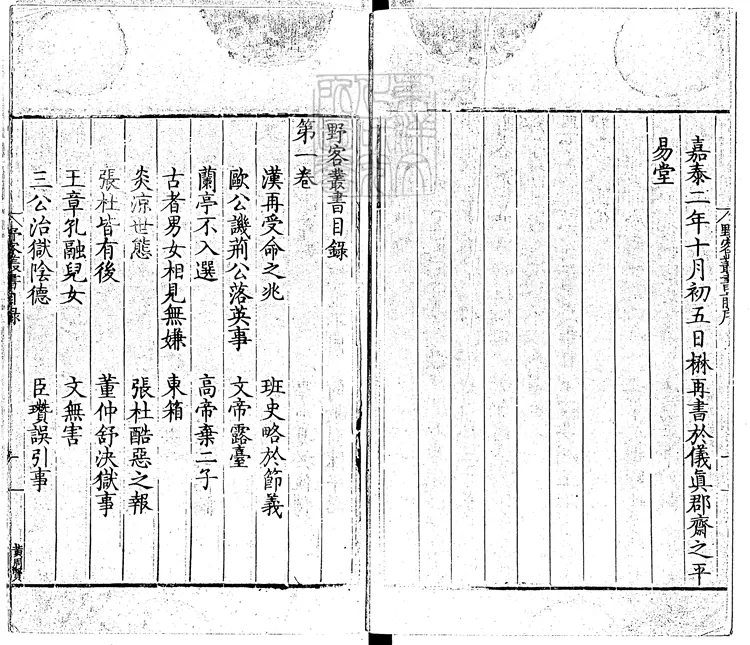 嘉泰二年十月初五日楙再書於儀真郡齋之平
易堂
野客叢書目錄
第一卷
漢再受命之兆 班史略於節義
歐公譏荊公落英事 文帝露臺
蘭亭不入選 高帝棄二子
古者男女相見無嫌 東箱
炎涼世態 張杜酷惡之報
張杜皆有後 董仲舒決獄事
王章孔融兒女 文無害
三公治獄陰德 臣瓚誤引事
野客叢書目錄